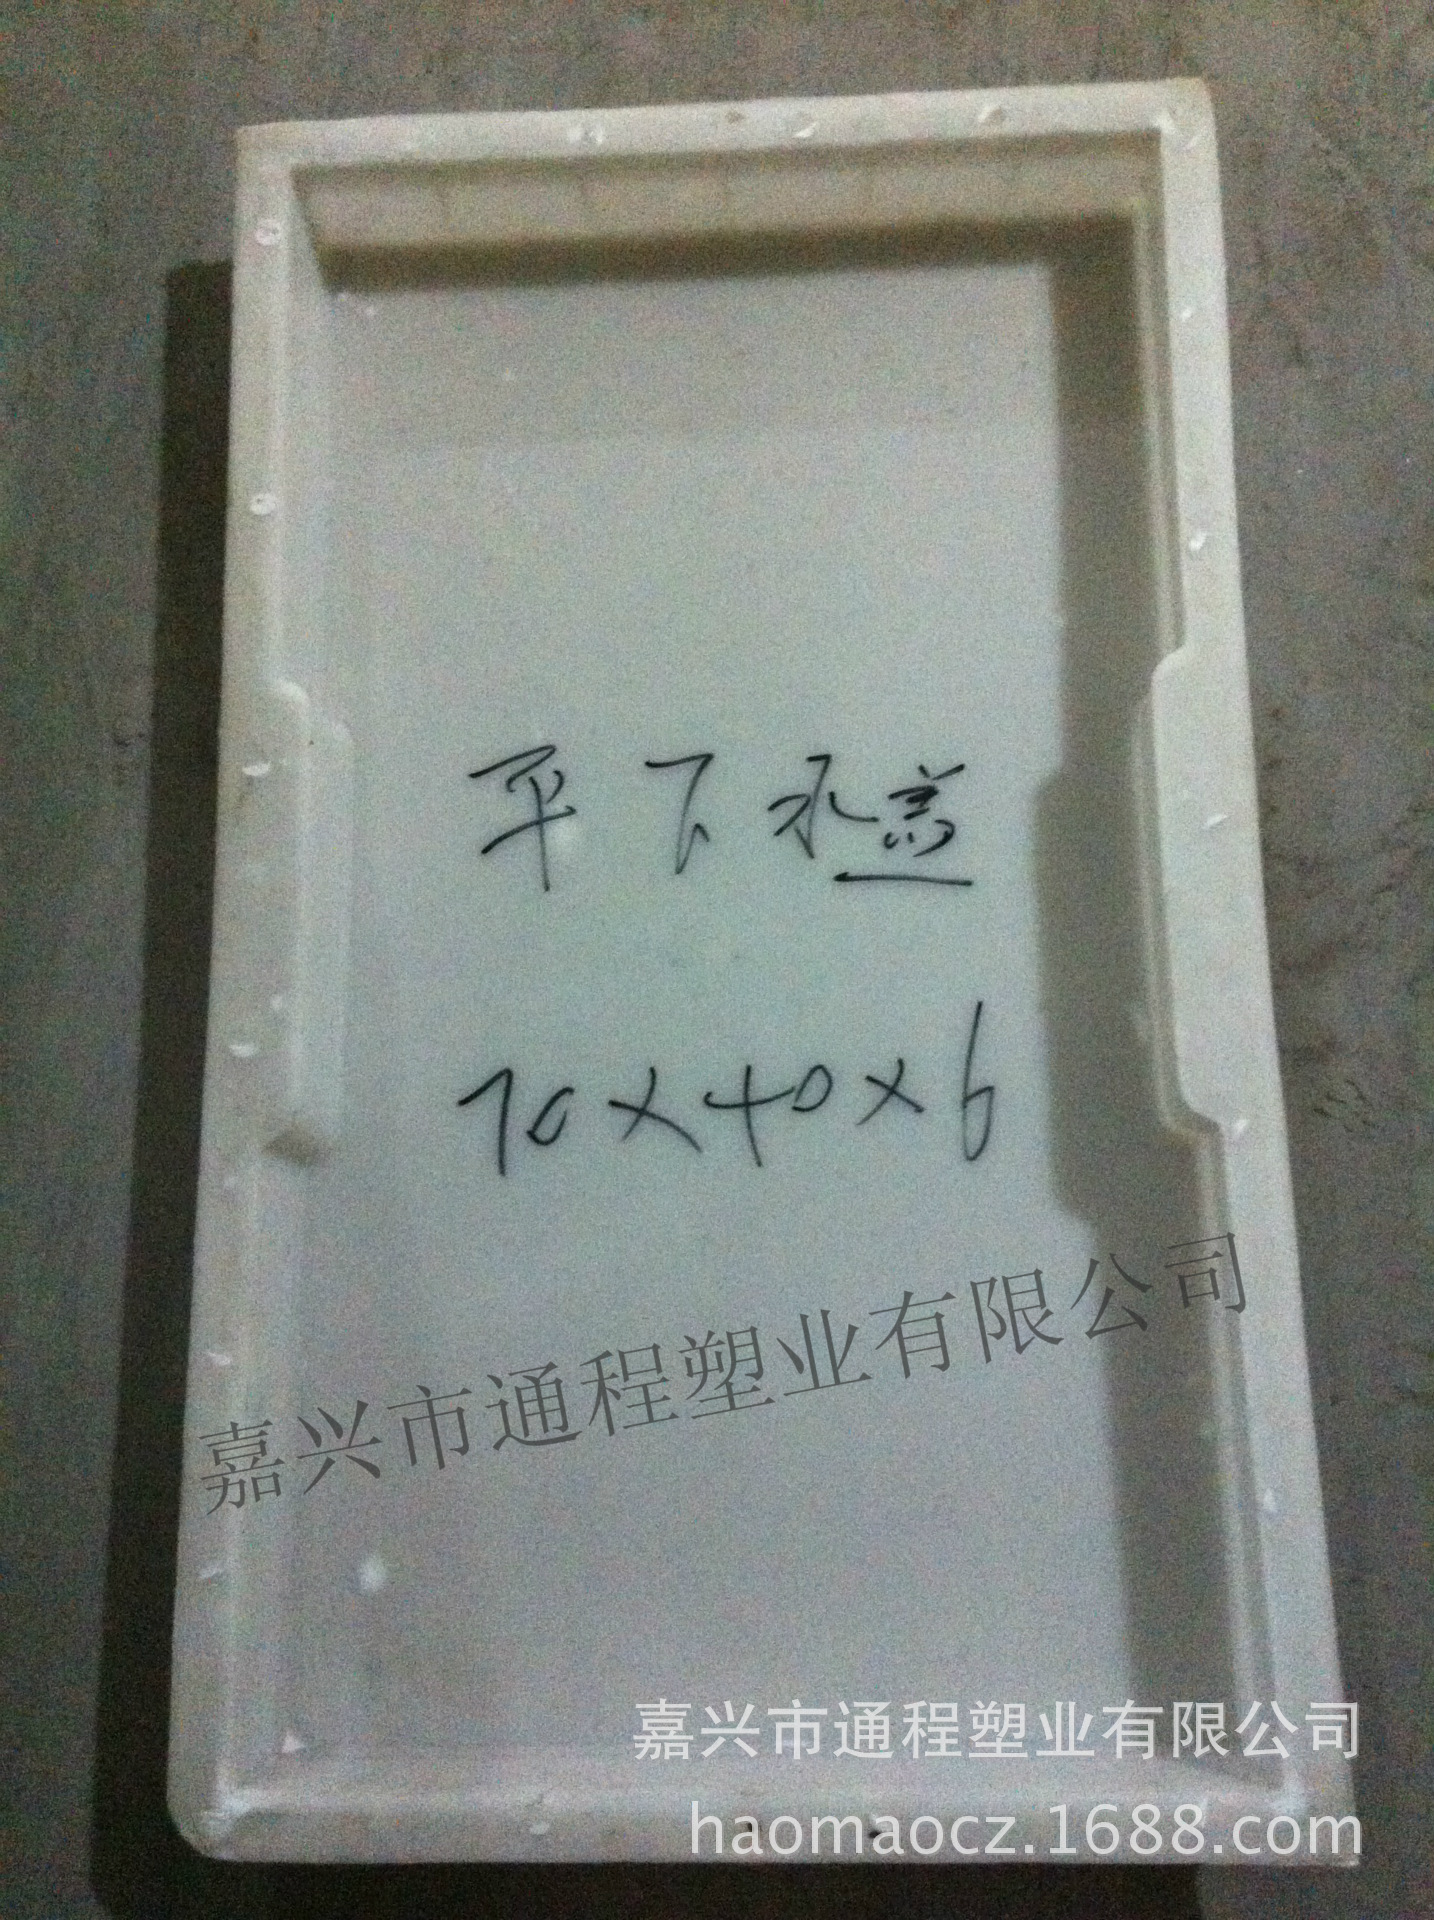 平下水盖
70×40×6
嘉兴市通程塑业有限公司
嘉兴市通程塑业有限公司
haomaocz.1688.com